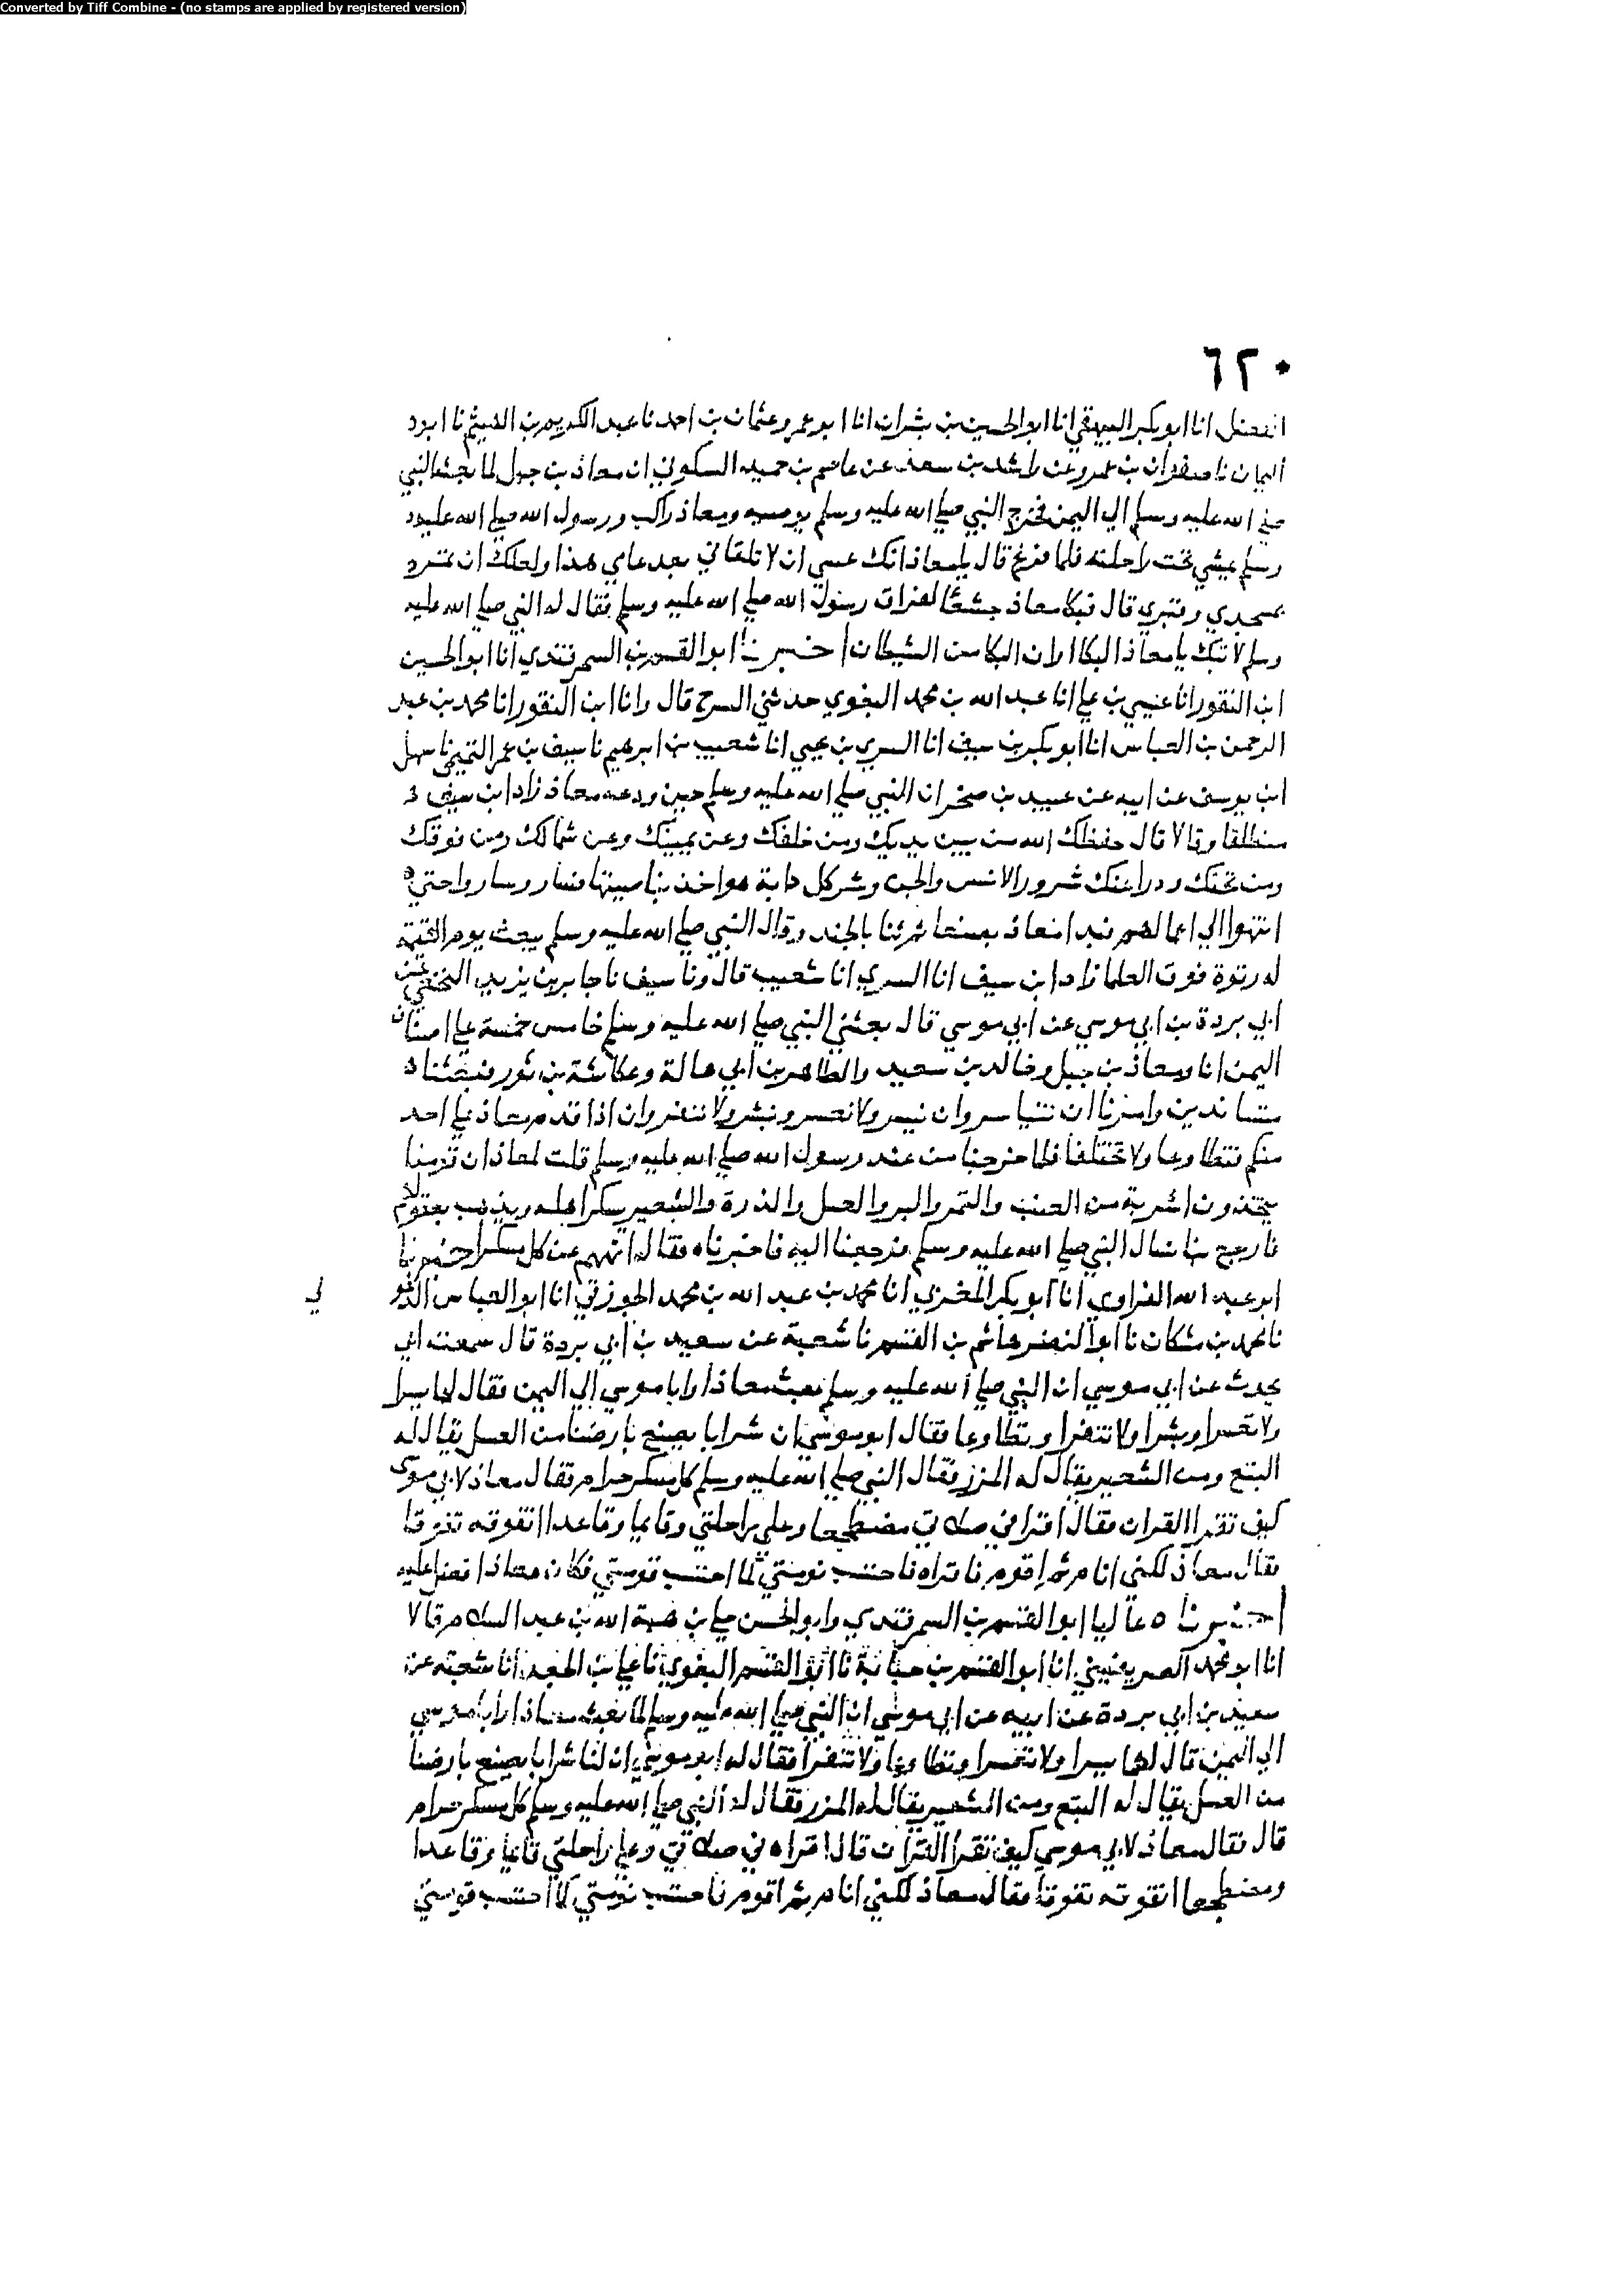 Converted by Tiff Combine - (no stamps are applied by registered version)
٦٢٠
الفضل انا ابو بكر البيهقي انا ابو الحسين بن بشران انا ابو عمرو عثمان بن احمد نا عبد الكريم بن الهيثم نا ابو
اليمان نا صفوان بن عمرو عن راشد بن سعد عن عاصم بن حميد السكوني ان معاذ بن جبل لما بعثه النبي
صلى الله عليه وسلم الي اليمن فخرج النبي صلى الله عليه وسلم يوصيه ومعاذ راكب ورسول الله صلى الله عليه و
وسلم يمشي تحت راحلته فلما فرغ قال يا معاذ انك عسي ان لا تلقاني بعد عامي هذا ولعلك ان تمر
بمسجدي وقبري قال فبكا معاذ جشعا لفراق رسول الله صلى الله عليه وسلم فقال له النبي صلى الله عليه
وسلم لا تبك يا معاذ البكا ان البكا من الشيطان اخبرنا ابو القسم بن السمرقندي انا ابو الحسين
ابن النقور انا عيسي بن علي انا عبد الله بن محمد البغوي حدثني السرح قال وانا ابن النقور انا محمد بن عبد
الرحمن بن العباس انا ابو بكر بن سيف انا السري بن يحيي انا شعيب بن ابرهيم نا سيف بن عمر التميمي نا سهل
ابن يوسف عن ابيه عن عبيد بن صخر ان النبي صلى الله عليه وسلم حين ودعه معاذ زاد ابن سيف
منطلقا وقالا قال حفظك الله من بين يديك ومن خلفك وعن يمينك وعن شمالك ومن فوقك
ومن تحتك ودرا عنك شرور الانس والجن وشر كل دابة هو اخذ بناصيتها فسار وسارو احتي
انتهوا الي اعمالهم فبدا معاذ بصنعا ثم ثنا بالجند وقال النبي صلى الله عليه وسلم يبعث يوم القيمة
له رتوة فوق العلما زاد ابن سيف انا السري انا شعيب قال ونا سيف نا جابر بن يزيد النخعي عن
ابي بردة بن ابي موسي عن ابي موسي قال بعثني النبي صلى الله عليه وسلم خامس خمسة علي اصناف
اليمن انا ومعاذ بن جبل وخالد بن سعيد والطاهر بن ابي هالة وعكاشة بن ثور فبعثنا
متساندين وامرنا ان نتياسر وان نيسر ولا نعسر ونبشر ولا ننفر وان اذا قدم معاذ علي احد
منكم فتطاوعا ولا تختلفا فلما خرجنا من عند رسول الله صلى الله عليه وسلم قلت لمعاذ ان قومنا
يتخذون اشربة من العنب والتمر والبر والعسل والذرة والشعير يسكر اهله ويذهب بعقولهم
فارجع بنا نسال النبي صلى الله عليه وسلم فرجعنا اليه فاخبرناه فقال انهم عن كل مسكر اخبرنا
ابو عبد الله الفراوي انا ابو بكر المغربي انا محمد بن عبد الله بن محمد الجوزقي انا ابو العباس الدغو
لي
نا محمد بن مشكان نا ابو النضر هاشم بن القسم نا شعبة عن سعيد بن ابي بردة قال سمعت ابي
يحدث عن ابي موسي ان النبي صلى الله عليه وسلم بعث معاذا وابا موسي الي اليمن فقال لهما يسرا
ولا تعسرا وبشرا ولا تنفرا وتطاوعا فقال ابو موسي ان شرابا يصنع بارضنا من العسل يقال له
البتع ومن الشعير يقال له المزر فقال النبي صلى الله عليه وسلم كل مسكر حرام فقال معاذ لابي موسى
كيف تقرا القران فقال اقرا في صلاتي مضطجعا وعلي راحلتي وقايما وقاعدا اتفوقه تفوقا
فقال معاذ لكني انام ثم اقوم فاقراه فاحتسب نومتي كما احتسب قومتي فكان معاذا فضل عليه
اخبرنا ه عاليا ابو القسم بن السمرقندي وابو الحسن علي بن هبة الله بن عبد السلام قالا
انا ابو محمد الصريفيني انا ابو القسم بن حبابة نا ابو القسم البغوي نا علي بن الجعد انا شعبة عن
سعيد بن ابي بردة عن ابيه عن ابي موسي ان النبي صلى الله عليه وسلم لما بعث معاذا وابا موسي
الي اليمن قال لهما يسرا ولا تعسرا وتطاوعا ولا تنفرا فقال له ابو موسي ان لنا شرابا يصنع بارضنا
من العسل يقال له البتع ومن الشعير يقال له المزر فقال له النبي صلى الله عليه وسلم كل مسكر حرام
قال فقال معاذ لابي موسي كيف تقرا القران قال اقراه في صلاتي وعلي راحلتي قائما وقاعدا
ومضطجعا اتفوقه تفوقا فقال معاذ لكني انام ثم اقوم فاحتسب نومتي كما احتسب قومتي